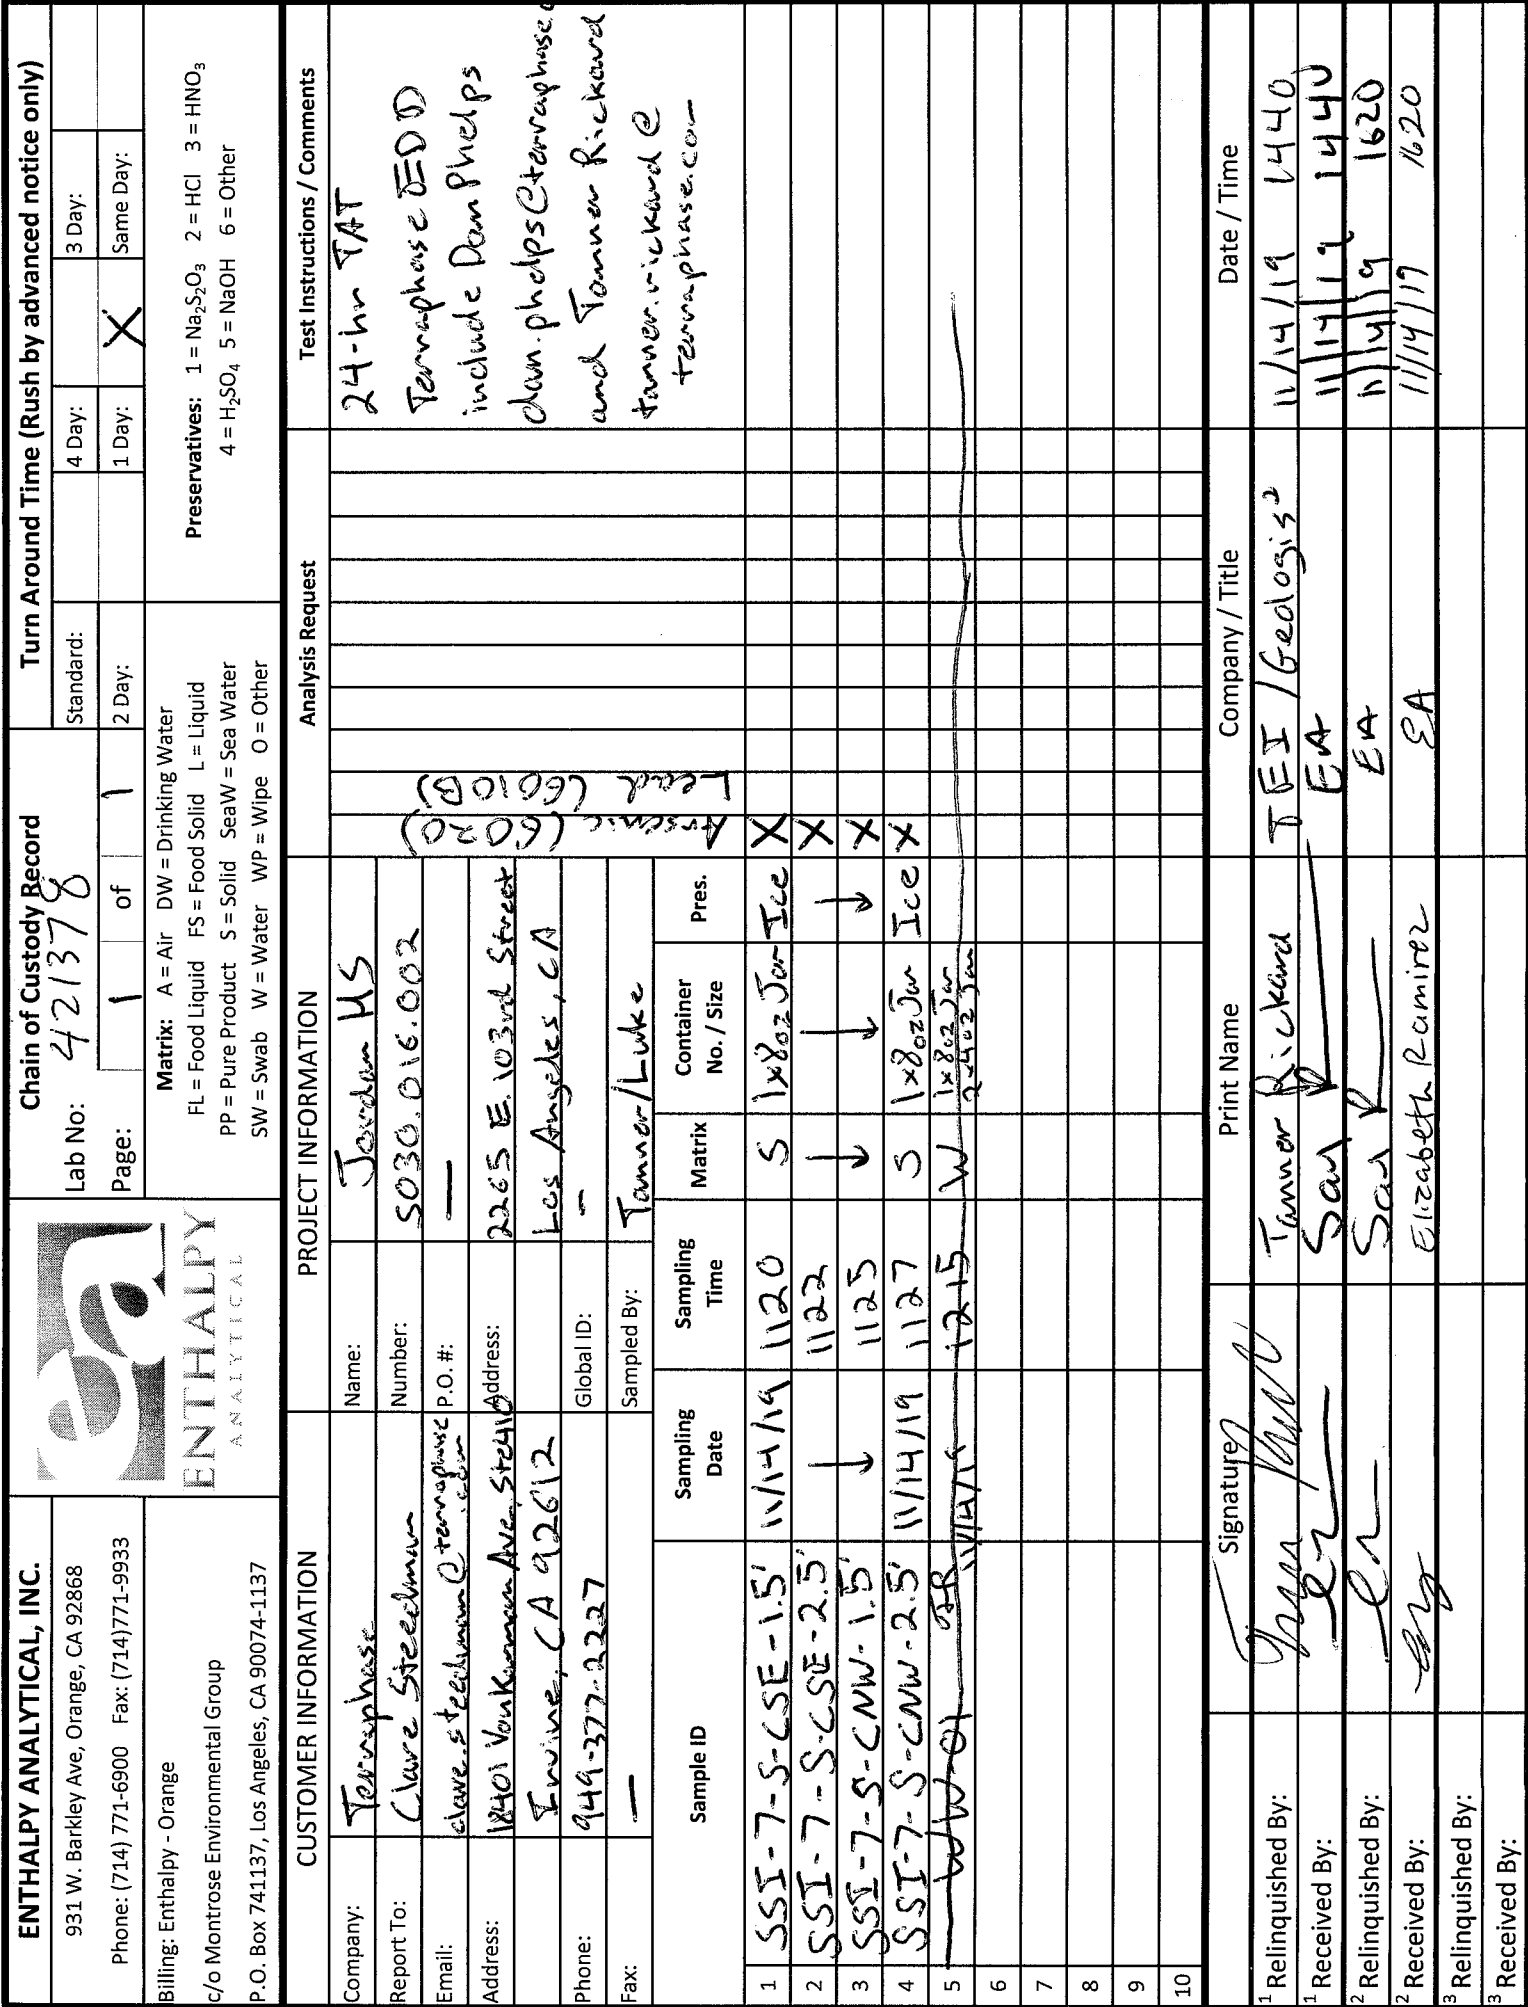 ENTHALPY ANALYTICAL, INC.
931 W. Barkley Ave, Orange, CA 92868
Phone: (714) 771-6900 Fax: (714)771-9933
Billing: Enthalpy - Orange
c/o Montrose Environmental Group
P.O. Box 741137, Los Angeles, CA 90074-1137
ea
ENTHALPY
ANALYTICAL
Chain of Custody Record
Lab No: 421378
Page: 1 of 1
Turn Around Time (Rush by advanced notice only)
Standard: 4 Day: 3 Day:
2 Day: 1 Day: X Same Day:
Matrix: A = Air DW = Drinking Water
FL = Food Liquid FS = Food Solid L = Liquid
PP = Pure Product S = Solid SeaW = Sea Water
SW = Swab W = Water WP = Wipe O = Other
Preservatives: 1 = Na₂S₂O₃ 2 = HCl 3 = HNO₃
4 = H₂SO₄ 5 = NaOH 6 = Other
CUSTOMER INFORMATION
Company: Terraphase
Report To: Clare Steedman
Email: clare.steedman@terraphase.com
Address: 18401 Von Karman Ave, Ste 410
Irvine, CA 92612
Phone: 949-377-2227
Fax: —
PROJECT INFORMATION
Name: Jordan HS
Number: S030.016.002
P.O. #: —
Address: 2265 E. 103rd Street
Los Angeles, CA
Global ID: -
Sampled By: Tanner/Luke
Analysis Request
Arsenic (6020)
Lead (6010B)
Test Instructions / Comments
24-hr TAT
Terraphase EDD
include Dan Phelps
dan.phelps@terraphase.c
and Tanner Rickard
tanner.rickard@
terraphase.com
Sample ID Sampling Date Sampling Time Matrix Container No. / Size Pres.
1 SSI-7-S-CSE-1.5' 11/14/19 1120 S 1x8oz Jar Ice X
2 SSI-7-S-CSE-2.5' ↓ 1122 ↓ ↓ ↓ X
3 SSI-7-S-CNW-1.5' 1125 X
4 SSI-7-S-CNW-2.5' 11/14/19 1127 S 1x8oz Jar Ice X
5 WW-01 TR 11/14/19 1215 W 1x8oz Jar 2x4oz Jar
6
7
8
9
10
Signature Print Name Company / Title Date / Time
1 Relinquished By: Tanner Rickard TEI / Geologist 11/14/19 1440
1 Received By: EA 11/14/19 1440
2 Relinquished By: EA 11/14/19 1620
2 Received By: Elizabeth Ramirez EA 11/14/19 1620
3 Relinquished By:
3 Received By: